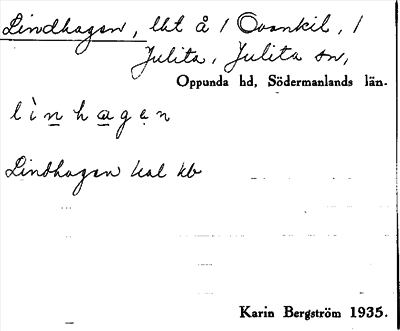 Lindhagen, lht å / Ovankil, /
Julita, Julita sn,
Oppunda hd, Södermanlands län.
lìnhagen
Lindhagen kal kb
Karin Bergström 1935.